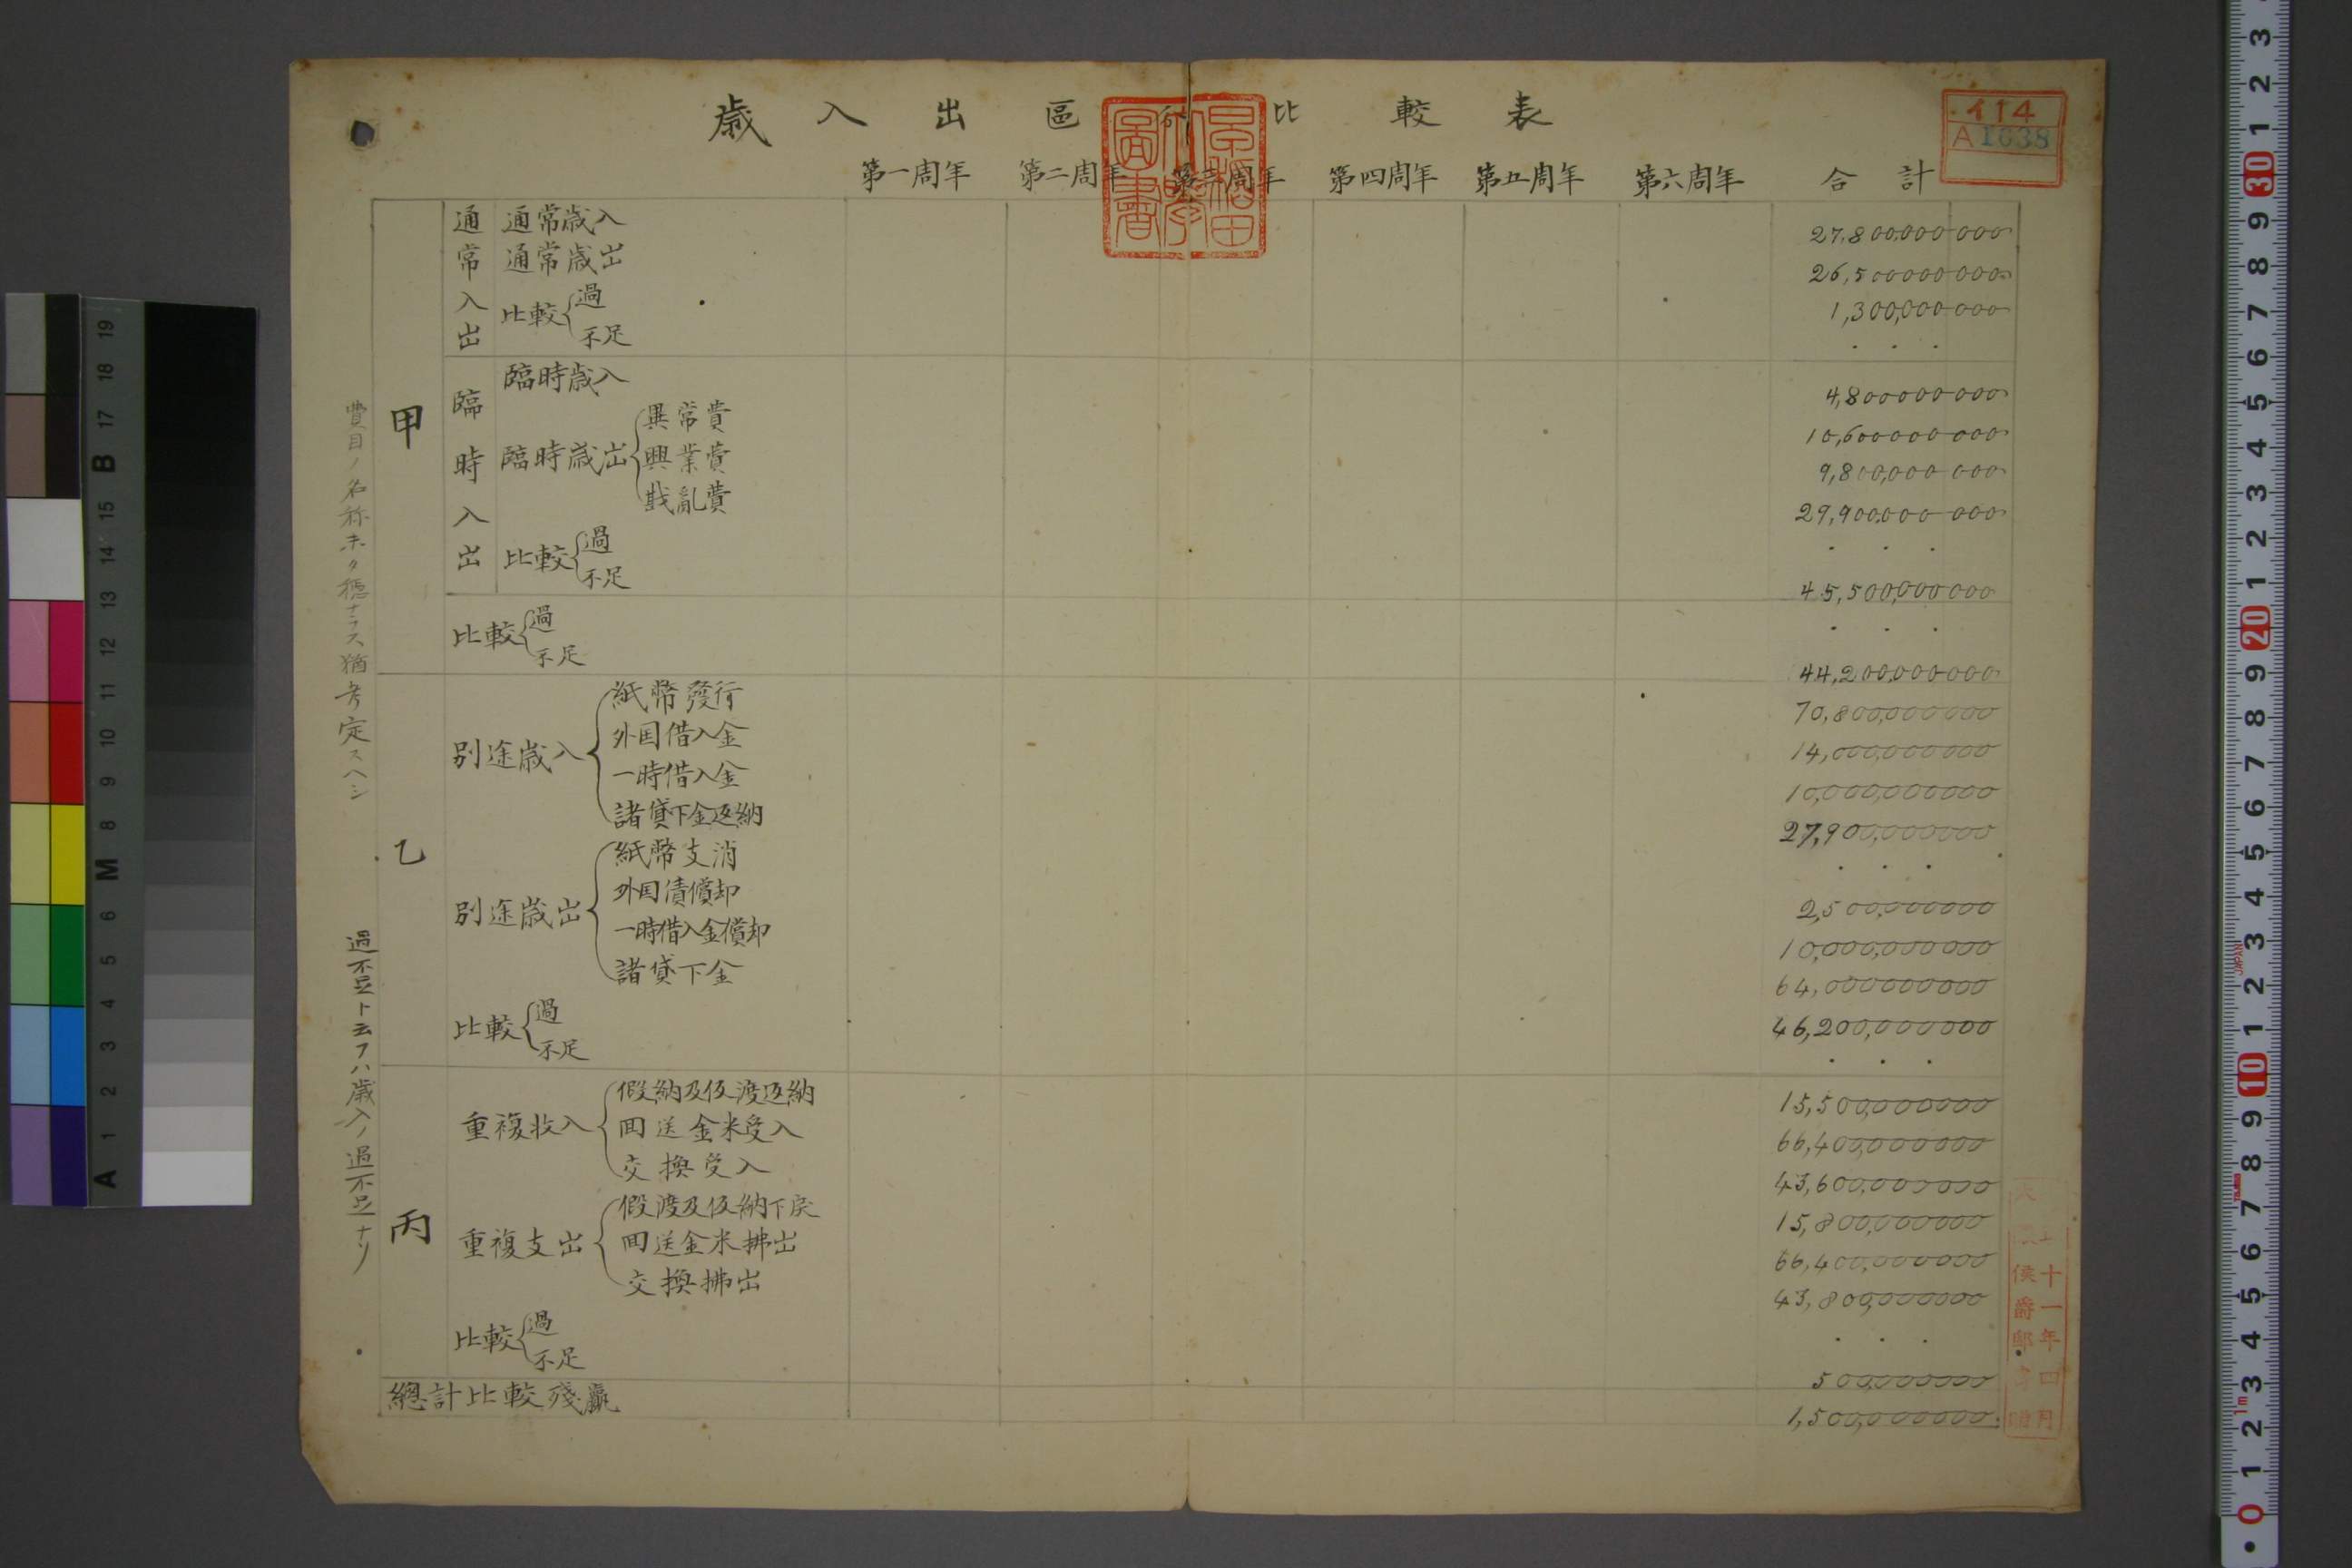 歳入出區分比較表
イ14
A1038
第一周年 第二周年 第三周年 第四周年 第五周年 第六周年 合計
甲
通常入出
通常歳入 27,800,000 000
通常歳出 26,500000 000
比較 過 1,300,000 000
不足 . . .
臨時入出
臨時歳入 4,800000 000
臨時歳出 異常費 10,600000 000
興業費 9,800,000 000
戡亂費 29,900,000 000
比較 過 . . .
不足 45,500,000 000
比較 過 . . .
不足 44,200,000 000
乙
別途歳入 紙幣發行 70,800,000 000
外国借入金 14,000,000 000
一時借入金 10,000,000 000
諸貸下金返納 27,900,000 000
別途歳出 紙幣支消 . . .
外国債償却 2,500,000 000
一時借入金償却 10,000,000 000
諸貸下金 64,000000 000
比較 過 46,200,000 000
不足 . . .
丙
重複收入 假納及仮渡返納 15,500,000 000
囬送金米受入 66,400,000 000
交換受入 43,600,000 000
重複支出 假渡及仮納下戻 15,800,000 000
囬送金米拂出 66,400,000 000
交換拂出 43,800,000 000
比較 過 . . .
不足 500,000 000
總計比較殘贏 1,500,000 000
費目ノ名称未タ穏ナラス猶考定スヘシ
過不足ト云フハ歳入ノ過不足ナリ
十一年四月
侯爵邸